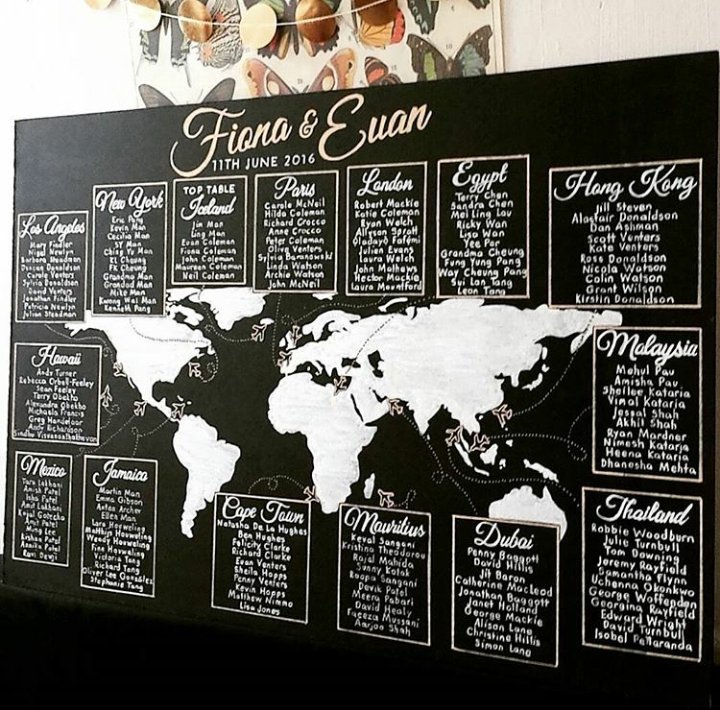 Fiona & Euan
11TH JUNE 2016
Los Angeles
Mary Findler
Nigel Newlyn
Barbara Newman
Duncan Donaldson
Carole Venters
Sylvia Donaldson
David Venters
Jonathan Findler
Patricia Newlyn
Julian Steadman
New York
Eric Pang
Kevin Man
Cecilia Man
SY Man
Ching Yu Man
EL Cheung
FK Cheung
Grandma Man
Grandad Man
Mike Man
Kwong Wai Man
Kenneth Pang
TOP TABLE
Iceland
Jin Man
Ling Man
Euan Coleman
Fiona Coleman
John Coleman
Maureen Coleman
Neil Coleman
Paris
Carole McNeil
Hilda Coleman
Richard Crocco
Anne Crocco
Peter Coleman
Olive Venters
Sylvia Baranowski
Linda Watson
Archie Watson
John McNeil
London
Robert Mackie
Katie Coleman
Ryan Welch
Allyson Spratt
Oladayo Fafemi
Julien Evans
Laura Welch
John Mathews
Hector Mackie
Laura Mountford
Egypt
Terry Chen
Sandra Chen
Mei Ling Lau
Ricky Wan
Lisa Wan
Yee Por
Grandma Cheung
Fung Yung Pang
Way Cheung Pang
Sui Lan Tang
Leon Tang
Hong Kong
Jill Steven
Alastair Donaldson
Dan Ashman
Scott Venters
Kate Venters
Ross Donaldson
Nicola Watson
Colin Watson
Grant Wilson
Kirstin Donaldson
Hawaii
Andy Turner
Rebecca Orbell-Feeley
Sean Feeley
Terry Obekho
Alexandra Obekho
Michaela Francis
Greg Handelaar
Andy Richardson
Sindhu Visvanaathakhevan
Malaysia
Mehul Pau
Amisha Pau
Shellee Kataria
Vimal Kataria
Jessal Shah
Akhil Shah
Ryan Mardner
Nimesh Kataria
Heena Kataria
Dhanesha Mehta
Mexico
Tara Lakhani
Anish Patel
Isha Patel
Amit Lakhani
Kejal Goricha
Amit Patel
Ming Lee
Kishan Patel
Annika Patel
Ravi Devji
Jamaica
Martin Man
Emma Gibson
Anton Archer
Ellen Man
Lara Houweling
Matthijs Houweling
Wendy Houweling
Finn Houweling
Victoria Tang
Richard Tang
Oliver Lee Gonzalez
Stephanie Tang
Cape Town
Natasha De La Hughes
Ben Hughes
Felicity Clarke
Richard Clarke
Evan Venters
Sheila Hopps
Penny Venters
Kevin Hopps
Matthew Nimmo
Lisa Jones
Mauritius
Keval Sangani
Kristina Theodorou
Rajal Mahida
Sunny Kotecha
Roopa Sangani
Devik Patel
Meera Pabari
David Healy
Faeeza Mussani
Aarjoo Shah
Dubai
Penny Baggott
David Hillis
Jit Baron
Catherine MacLeod
Jonathan Baggott
Janet Holland
George Mackie
Alison Lane
Christine Hillis
Simon Lane
Thailand
Robbie Woodburn
Julie Turnbull
Tom Downing
Jeremy Rayfield
Samantha Flynn
Uchenna Okonkwo
George Woffenden
Georgina Rayfield
Edward Wright
David Turnbull
Isobel Penaranda